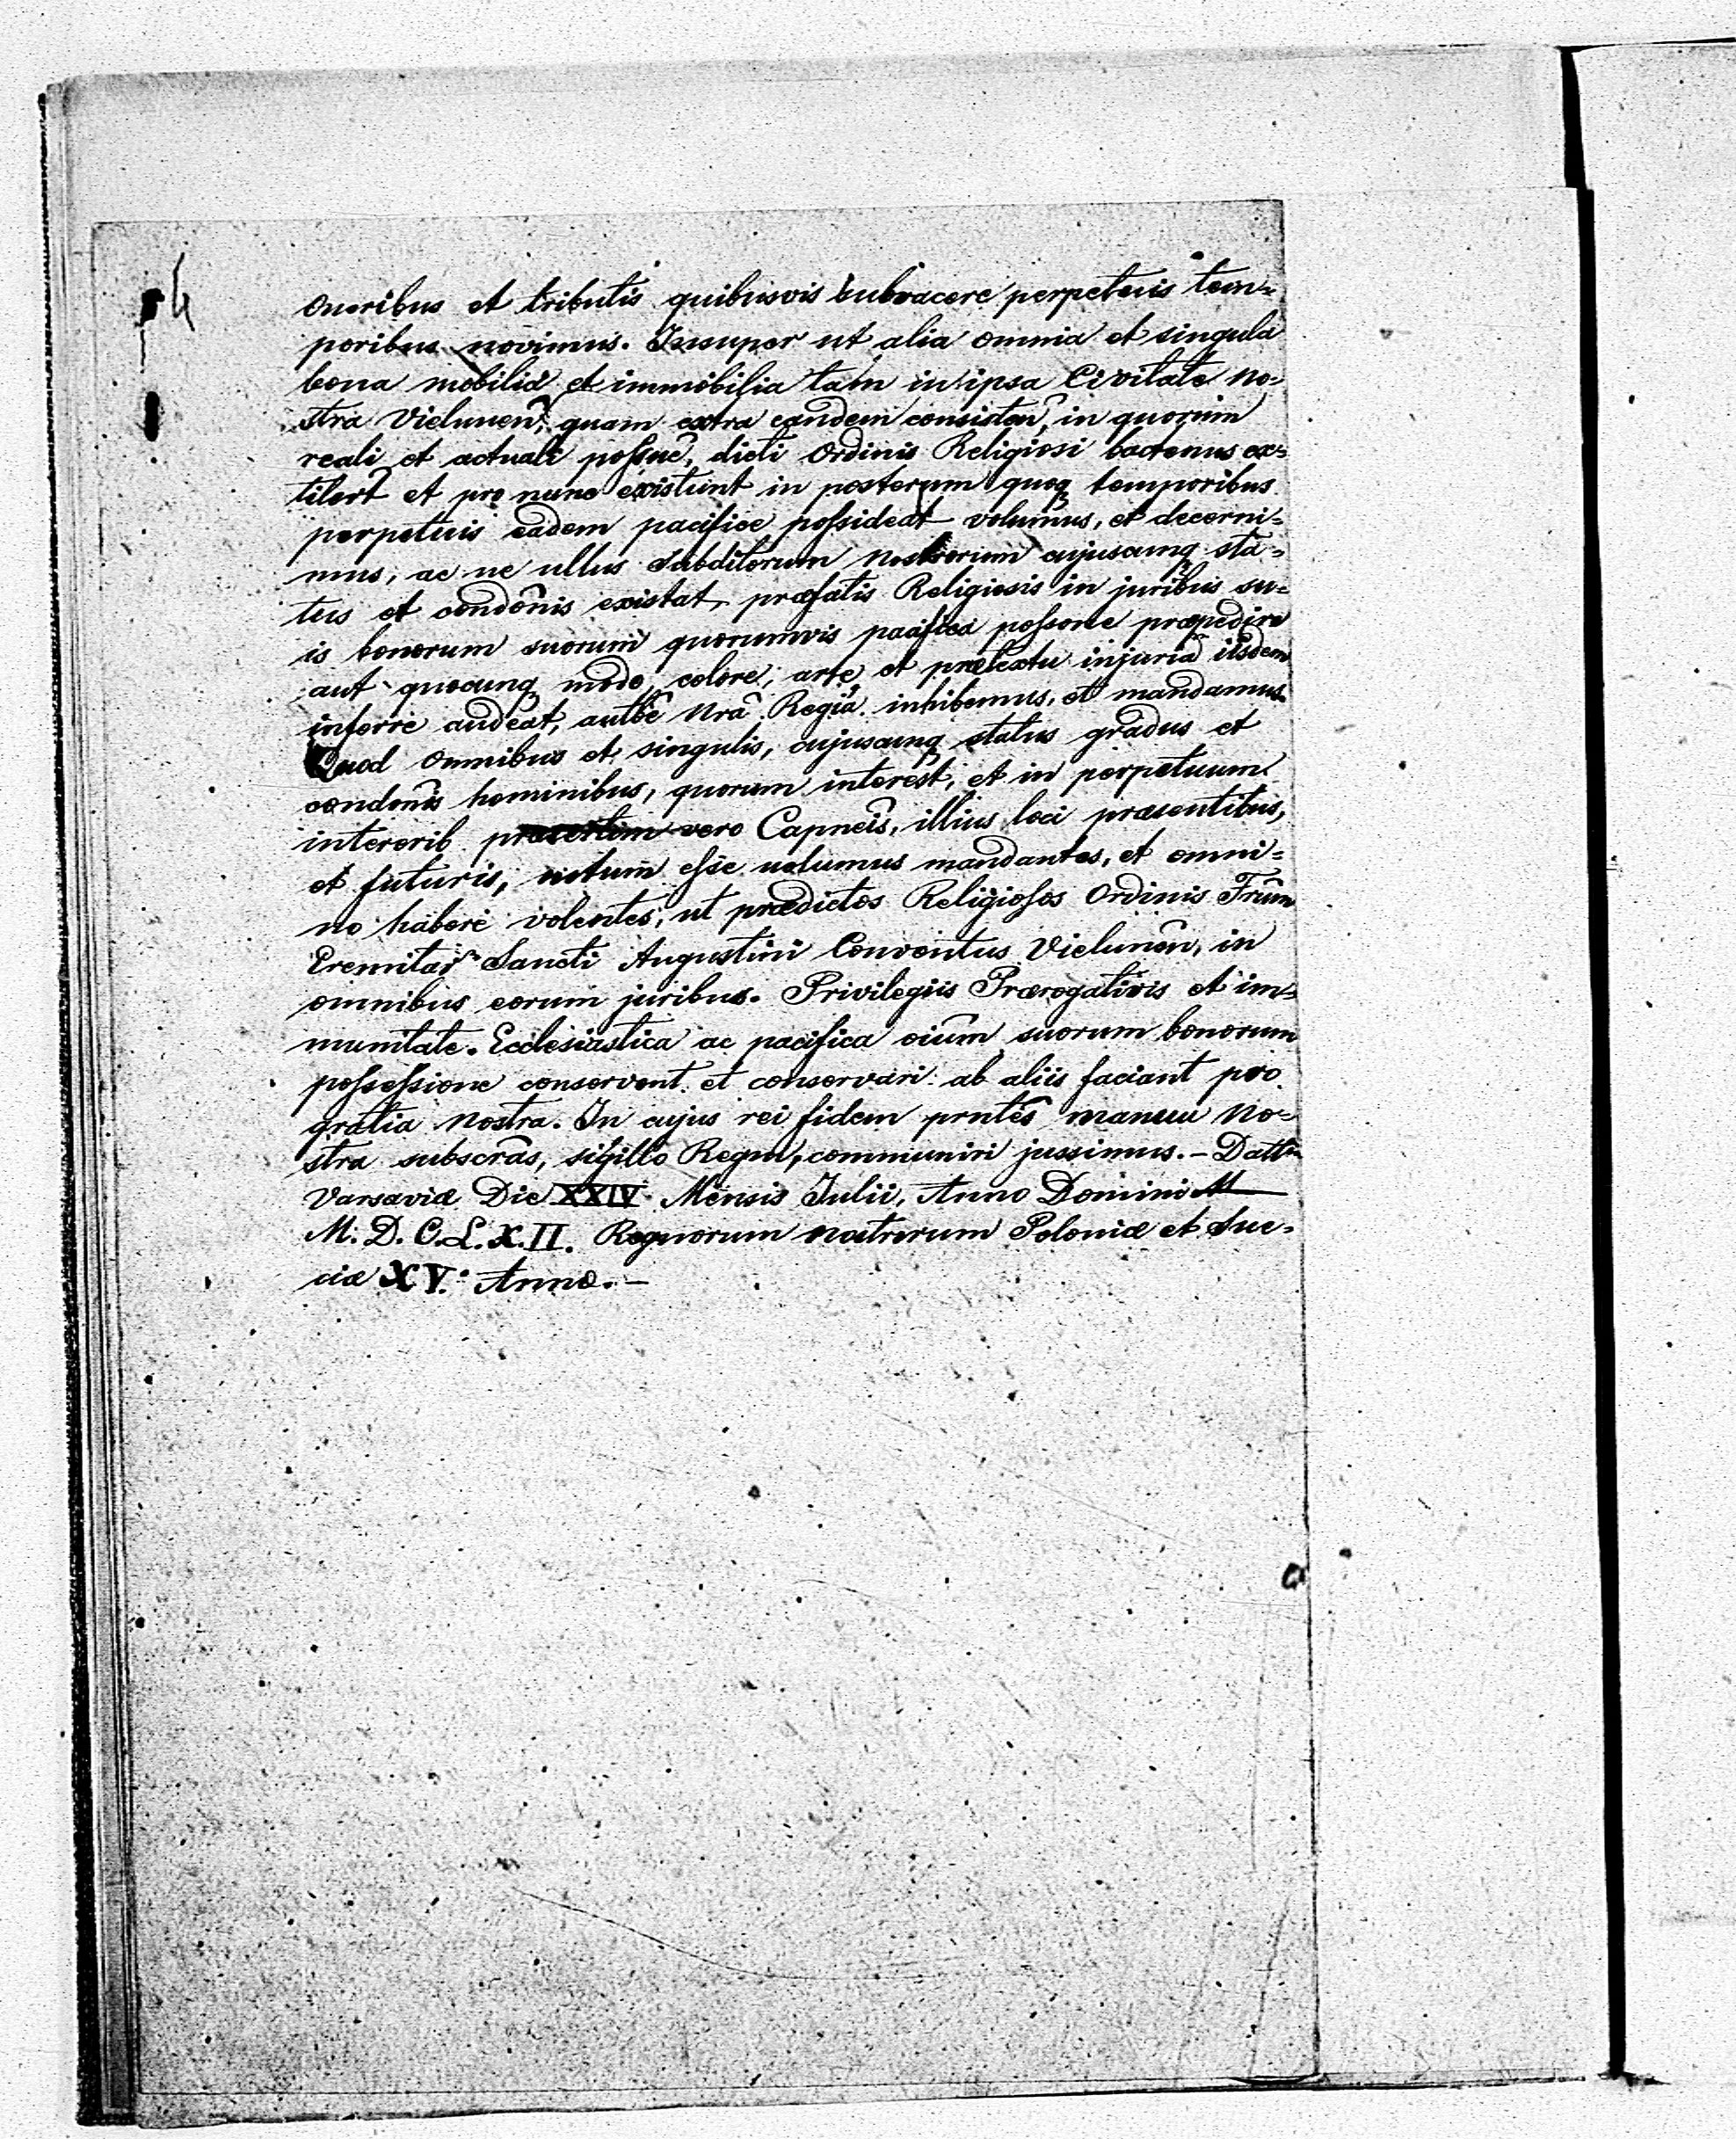 oneribus et tributis quibusvis subvacere perpetuis tem=
poribus novimus. Insuper ut alia omnia et singula
bona mobilia et immobilia tam in ipsa Civitate No=
stra Vielunen̂, quam extra eandem consisten̂, in quorum
reali et actuali poſsnê, dicti Ordinis Religiosi hactenus ex=
titert̂ et pro nunc existunt in posterum quoqꝫ temporibus
perpetuis eadem pacifice poſsideat volum̂us, et decerni=
mus, ac ne ullus Subditorum Nostrorum cujuscunqꝫ sta=
tus et condon̂is existat, præfatis Religiosis in juribus su=
is bonorum suorum quorumvis pacifica poſsone præpedire
aut quocunqꝫ modo, colore, arte et prætextu injuriâ iisdem
inferre audeat, autht̂e Nrâ Regiâ inhibemus, et mandamus.
Quod Omnibus et singulis, cujuscunqꝫ status gradus et
condon̂is hominibus, quorum interest, et in perpetuum
intererib præsertim vero Capneîs, illius loci præsentibus,
et futuris, notum eſse uolumus mandantes, et omni=
no habere volentes, ut prædictos Religioſos Ordinis Frûm
Eremitar̂ Sancti Augustini Conventus Vielunen̂, in
omnibus eorum juribus. Privilegiis Prærogativis et im=
munitate. Ecclesiastica ac pacifica oiûm suorum bonorum
poſseſsione conservent et conservari ab aliis faciant pro
gratia Nostra. In cujus rei fidem prntês manuu No=
stra subscrâs, sigillo Regni, communiri jussimus. – Datt
Varsaviæ Die XXIV Mensis Julii, Anno Domini M
M. D. C. L. X. II. Regnorum nostrorum Poloniæ et Sue=
ciæ XV.° Anno. –